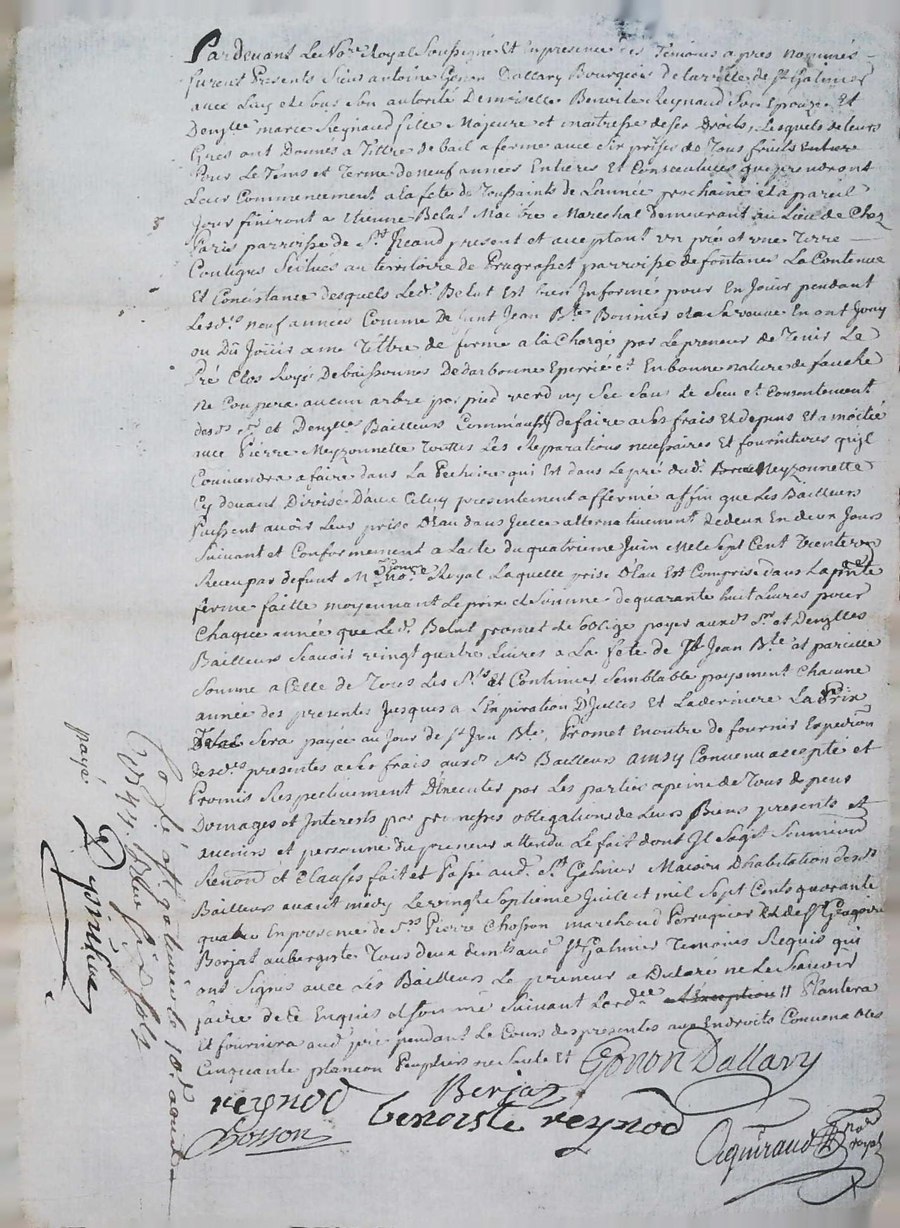 Pardevant Le No.re Royal Soussigné Et En presence des Témoins apres nommés
furent Presents Sieur antoine Gonon Dallary Bourgeois de la ville de St Galmier
avec Luy et de sous son autorité Demoizelle Benoite Reynaud Son Epouze Et
Demzlle marie Reynaud fille Majeure et maitresse de ses Droits, Lesquels de leurs
Grés ont Donnés a Tittre de bail a ferme avec Six prises de Tous fruits Entiere
Pour Le Tems et Terme de neuf années Entieres Et Consecutives qui prendront
Leur Commencement a la fete de Toussaints de L'année prochaine et a pareil
Jour finiront a Etienne Belut Maitre Marechal demeurant au Lieu de Chez
Paris parroisse de St heand present et acceptant un pré et une Terre
Contigus Scitués au territoire de parroisse de fontanes La Contenue
Et Consistance desquels Led. Belut Est bien Informé pour En Jouir pendant
Lesd. neuf années Comme Defunt Jean Bte Bonnier et sa veuve En ont Jouy
ou Dû Joüir a me Tittre de ferme a la Charge par Le preneur de Tenir Le
Pré Clos Rayé De baissonnes Dedarbonne Eperrié et En bonne nature de fauche
ne Coupera aucun arbre par pied verd ny Sec Sans Le Sceu et Consentement
desd. Sr et Demzlles Bailleurs Comm aussy de faire a ses frais Et depens Et a moitié
avec Pierre Meyzonnette Touttes Les Reparations necessaires Et fournitures qu'il
Conviendra a faire dans La Pechoire qui Est dans Le pré dud. Meyzonnette
Cy devant Divisé D'avec Celuy presentement affermé affin que Les Bailleurs
Puissent avoir Leur prise D'Eau dans Jcelle alternativement de deux En deux Jours
Suivant et Conformement a Lacte du quatrieme Juin Mil Sept Cent Trente
Receu par defunt Me no.re Royal Laquelle prise D'Eau Est Comprise dans La pnte
ferme faitte moyennant Le prix et Somme de quarante huit Livres pour
Chaque année que Led. Belut promet et oblige payer auxd. Sr et Demzlles
Bailleurs Scavoir vingt quatre Livres a La fete de St Jean Bte et pareille
Somme a Celle de Tous Les Sts et Continuer Semblable payement Chacune
année des presentes Jusques a L'Expiration D'Jcelles Et La derniere La prix
Sera payée au Jour de St Jean Bte, Promet En outre de fournir Expedition
desd. presentes a ses frais auxd. Srs Bailleurs ainsy Convenu accepté et
Promis Respectivement D'Executer par Les parties a peine de Tous depens
Domages et Interests par Expresses obligations de Leurs Biens presents Et
avenirs et personne du preneur attendu Le fait dont Jl Sagit Soumissions
Renon.ons et Clauses fait et Passé aud. St Galmier Maison D'habitation desd.
Bailleurs avant midy Le vingt Septieme Juillet mil Sept Cents quarante
quatre En presence de Srs Pierre Chosson marchand Perruquier Et de Sr
Berjat aubergiste Tous deux dud. St Galmier Temoins Requis qui
ont Signés avec Les Bailleurs Le preneur a Declaré ne Le Scavoir
faire de ce Enquis et Sommé Suivant Lord.ce Il Plantera
Et fournira aud. pré pendant Le Cours des presentes aux Endroits Convenables
Cinquante plancon Peupliers ou Saule Et
Gonon Dallary
reynod
Berjat
benoiste reynod
Chosson
Aguiraud no.re royal
Co.lé à St galmier le 10e aoust
1744.
payé